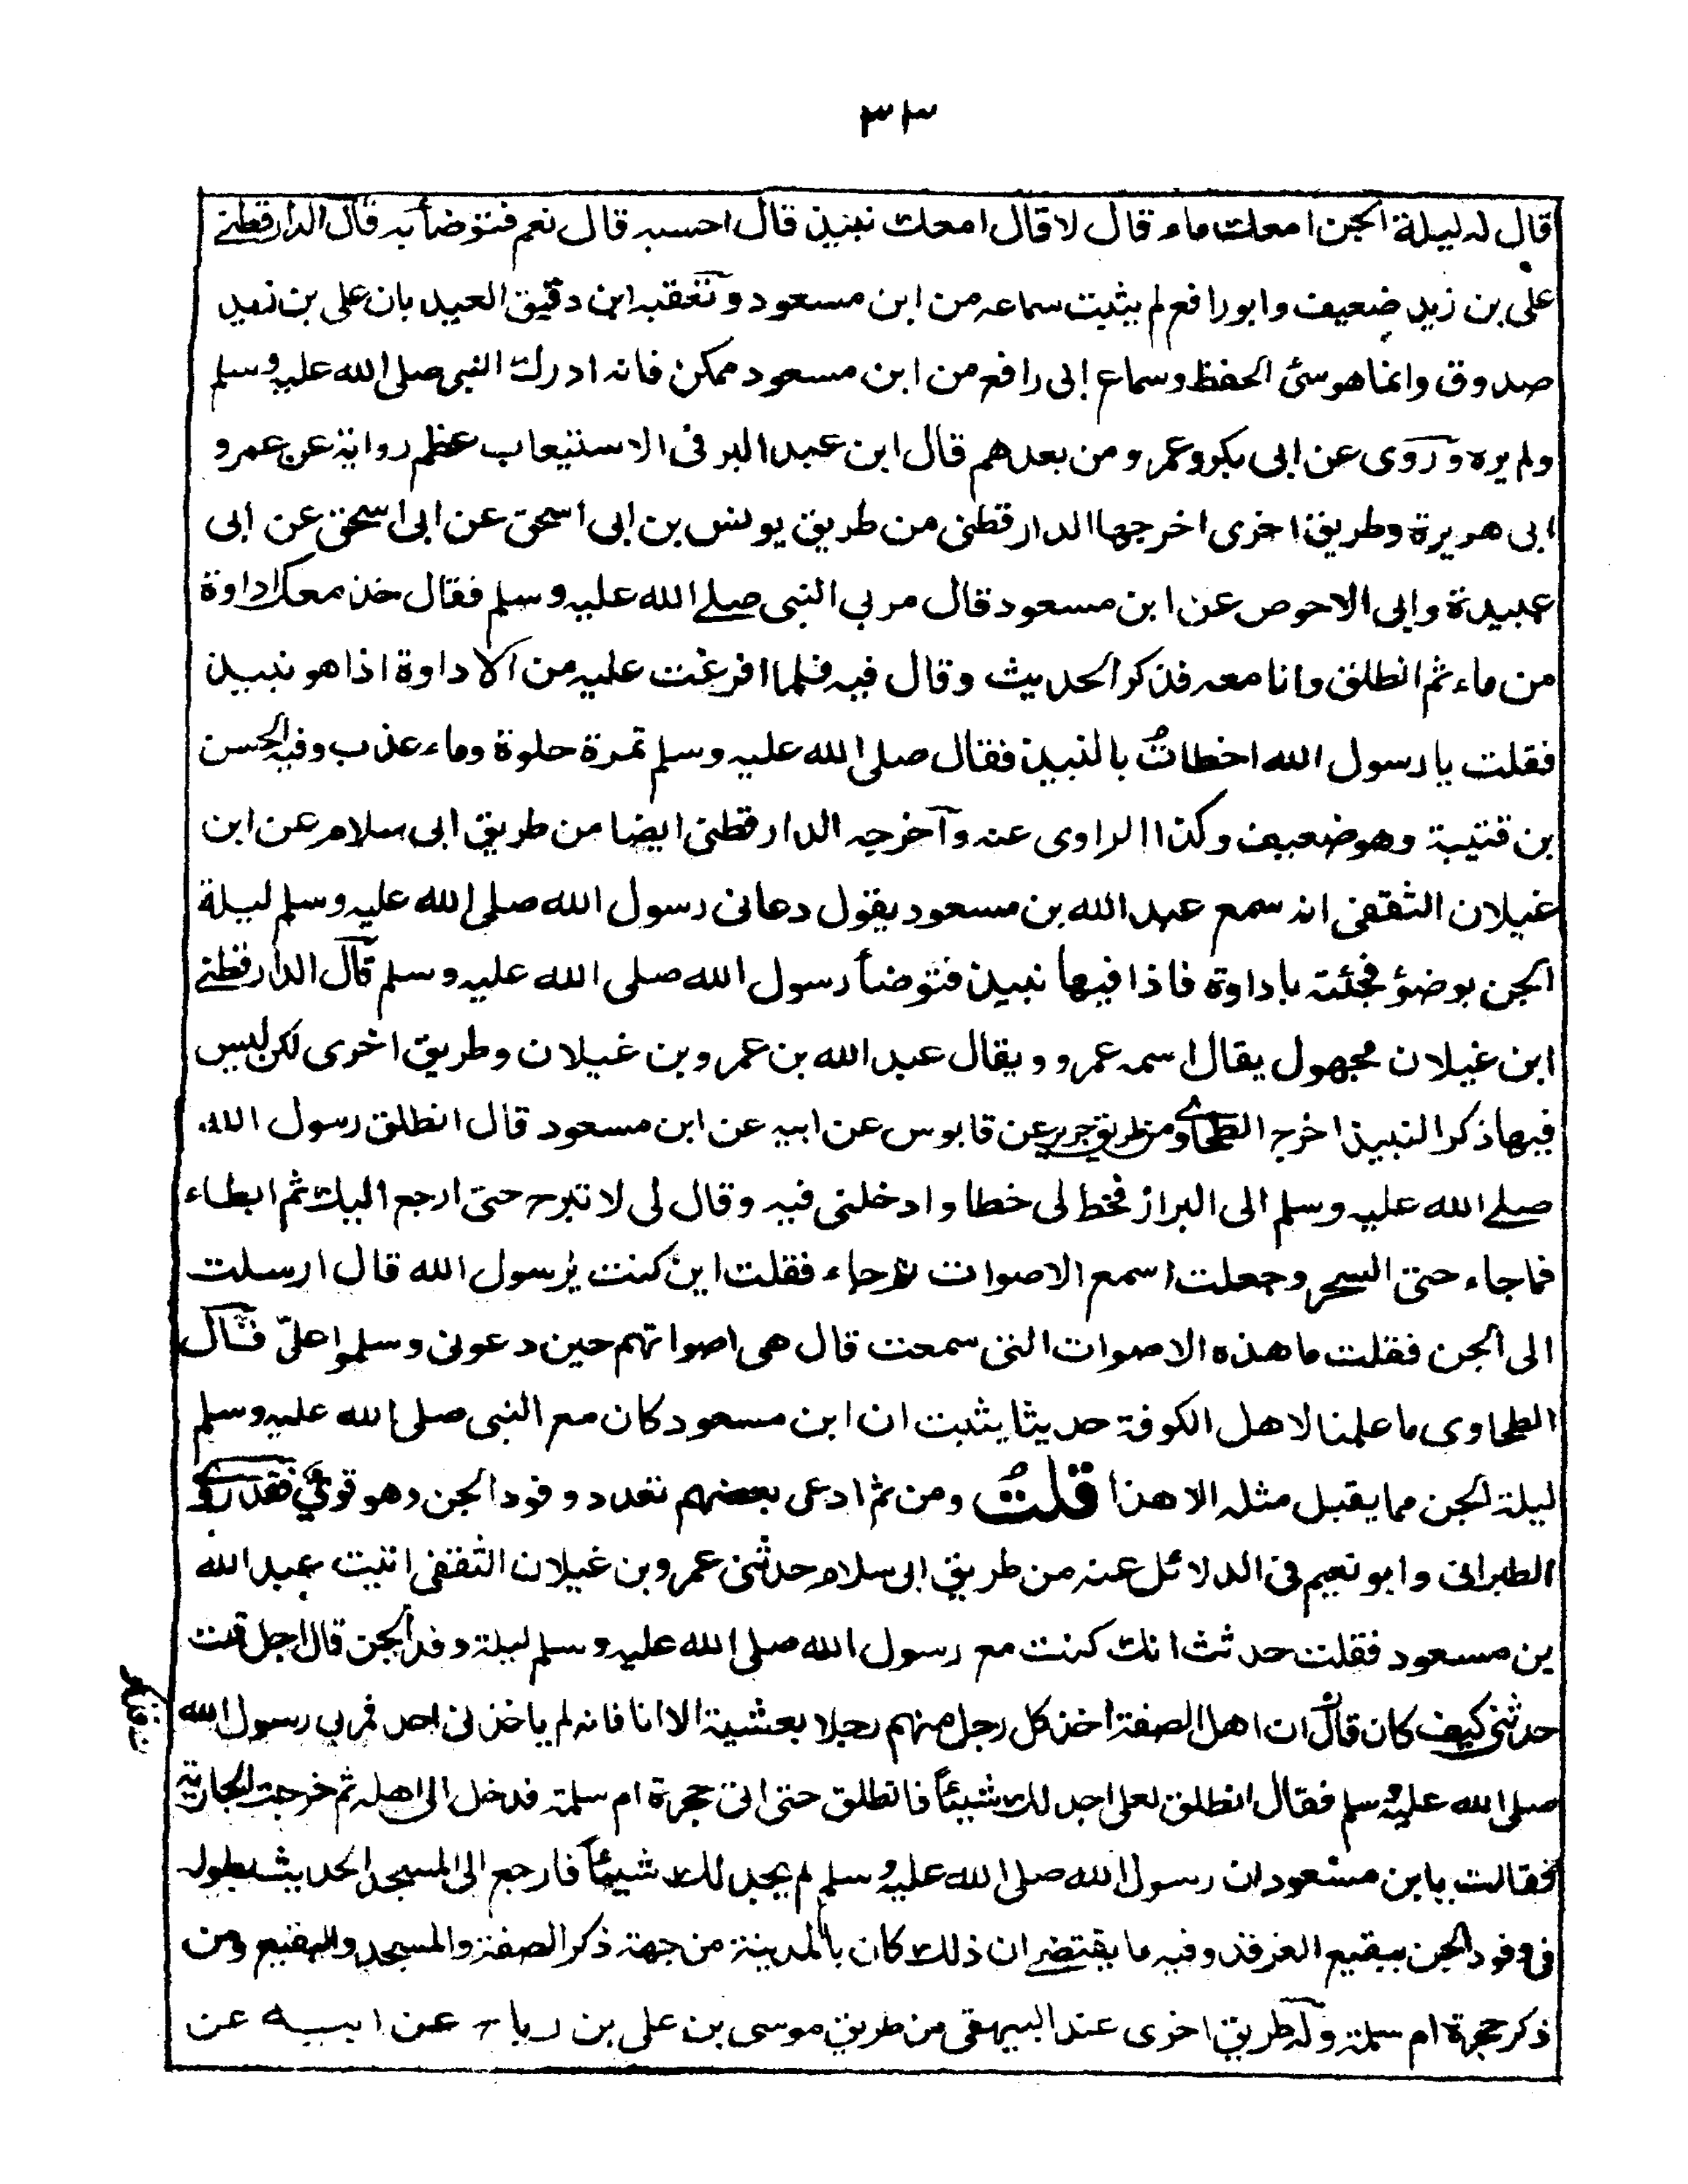 ٣٣
قال له ليلة الجن امعك ماء قال لا قال امعك نبيذ قال احسبه قال نعم فتوضأ به قال الدارقطنے
علی بن زيد ضعيف وابو رافع لم يثبت سماعه من ابن مسعود وتعقبه ابن دقيق العيد بان علی بن زيد
صدوق وانما هو سئ الحفظ وسماع ابی رافع من ابن مسعود ممكن فانه ادرك النبی صلی الله عليه وسلم
ولم يره وروی عن ابی بكر وعمر ومن بعدهم قال ابن عبد البر فی الاستيعاب عظم رواية عن عمر و
ابی هريرة وطريق اخری اخرجها الدارقطنی من طريق يونس بن ابی اسحق عن ابی اسحق عن ابی
عبيدة وابی الاحوص عن ابن مسعود قال مر بی النبی صلے الله عليه وسلم فقال خذ معك اداوة
من ماء ثم انطلق وانا معه فذكر الحديث وقال فيه فلما افرغت عليه من الاداوة اذا هو نبيذ
فقلت يا رسول الله اخطات بالنبيذ فقال صلی الله عليه وسلم تمرة حلوة وماء عذب وفيه الحسن
بن قتيبة وهو ضعيف وكذا الراوی عنه وآخرجه الدارقطنی ايضا من طريق ابی سلام عن ابن
غيلان الثقفی انه سمع عبد الله بن مسعود يقول دعانی رسول الله صلی الله عليه وسلم ليلة
الجن بوضؤ فجئته باداوة فاذا فيها نبيذ فتوضأ رسول الله صلی الله عليه وسلم قال الدارقطنے
ابن غيلان مجهول يقال اسمه عمرو ويقال عبد الله بن عمرو بن غيلان وطريق اخری لكن ليس
فيها ذكر النبيذ اخرجه الطحاوے من طريق جرير عن قابوس عن ابيه عن ابن مسعود قال انطلق رسول الله
صلے الله عليه وسلم الی البراز فخط لی خطا وادخلنی فيه وقال لی لا تبرح حتی ارجع اليك ثم ابطاء
فما جاء حتی السحر وجعلت اسمع الاصوات ثم جاء فقلت اين كنت يٰرسول الله قال ارسلت
الی الجن فقلت ما هذه الاصوات التی سمعت قال هی اصواتهم حين دعونی وسلموا علیّ قال
الطحاوی ما علمنا لاهل الكوفة حديثا يثبت ان ابن مسعود كان مع النبی صلی الله عليه وسلم
ليلة الجن مما يقبل مثله الا هذا قلت ومن ثم ادعی بعضهم تعدد وفود الجن وهو قوی فقد روے
الطبرانی وابو نعيم فی الدلائل عنه من طريق ابی سلام حدثنی عمرو بن غيلان الثقفی اتيت عبد الله
بن مسعود فقلت حدثت انك كنت مع رسول الله صلی الله عليه وسلم ليلة وفد الجن قال اجل قلت
حدثنی كيف كان قال ان اهل الصفة اخذ كل رجل منهم رجلا بعشية الا انا فانه لم ياخذنی احد فمر بی رسول الله
صلی الله عليه وسلم فقال انطلق لعلی اجد لك شيئاً فانطلق حتی اتی حجرة ام سلمة فدخل الی اهله ثم خرجت الجارية
فقالت يا بن مسعود ان رسول الله صلی الله عليه وسلم لم يجد لك شيئاً فارجع الی المسجد الحديث بطوله
فی وفود الجن ببقيع الغرقد وفيه ما يقتضے ان ذلك كان بالمدينة من جهة ذكر الصفة والمسجد والبقيع ومن
ذكر حجرة ام سلمة وله طريق اخری عند البيهقی من طريق موسی بن علی بن رباح عن ابيه عن